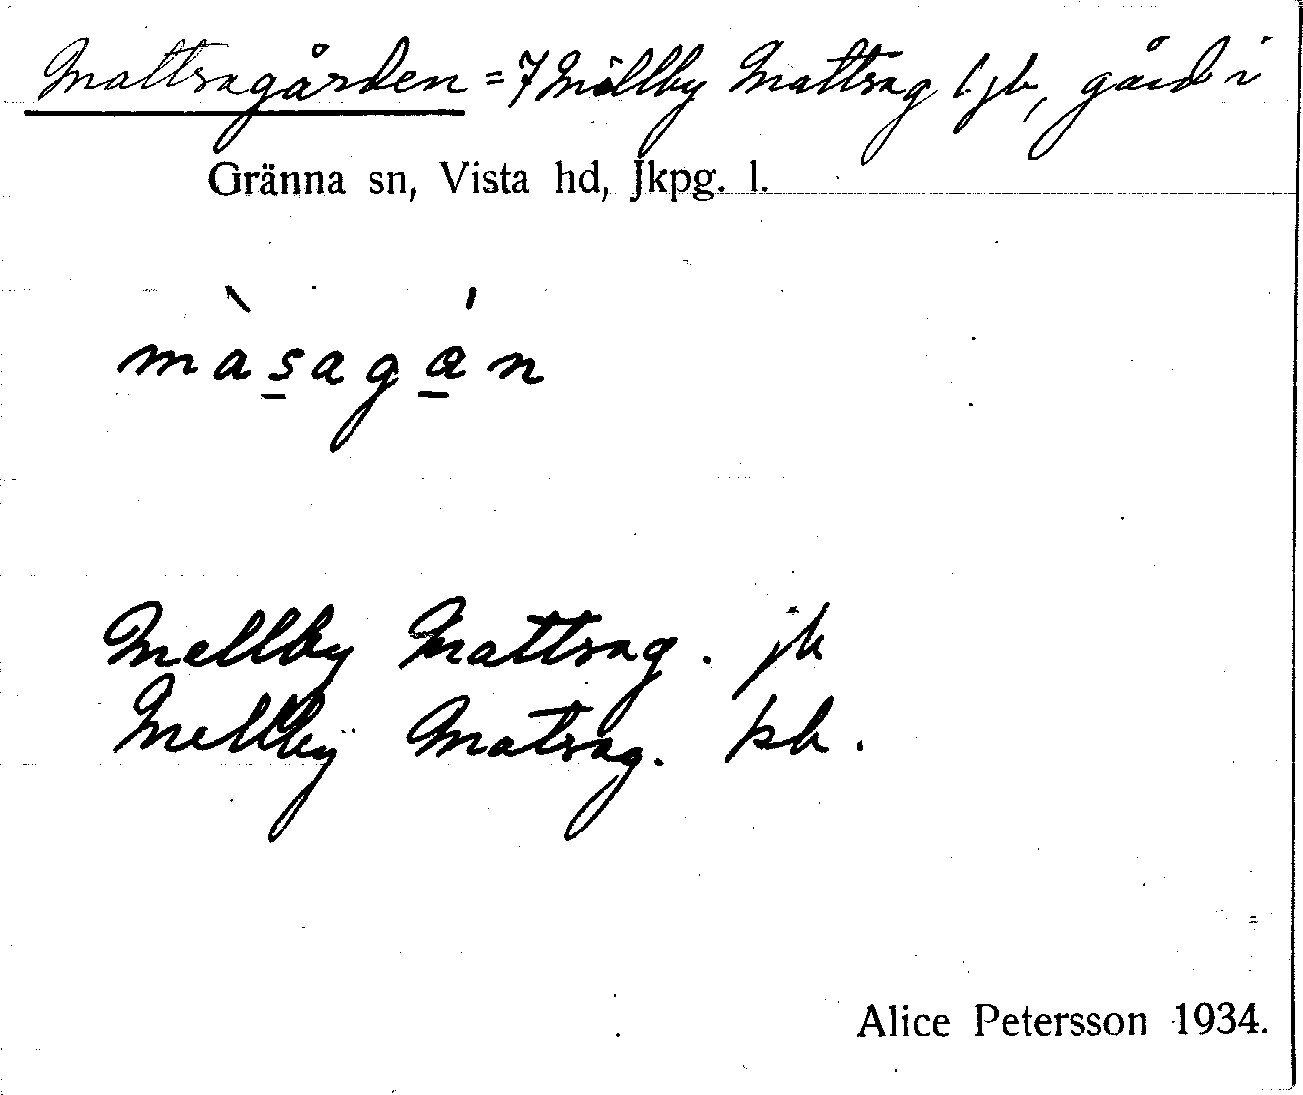 Mattsagården = 7 Mellby Mattsag 1 jb, gård i
Gränna sn, Vista hd, Jkpg. l.
màsagán
Mellby Mattsag. jb
Mellby Matsag. kb.
Alice Petersson 1934.